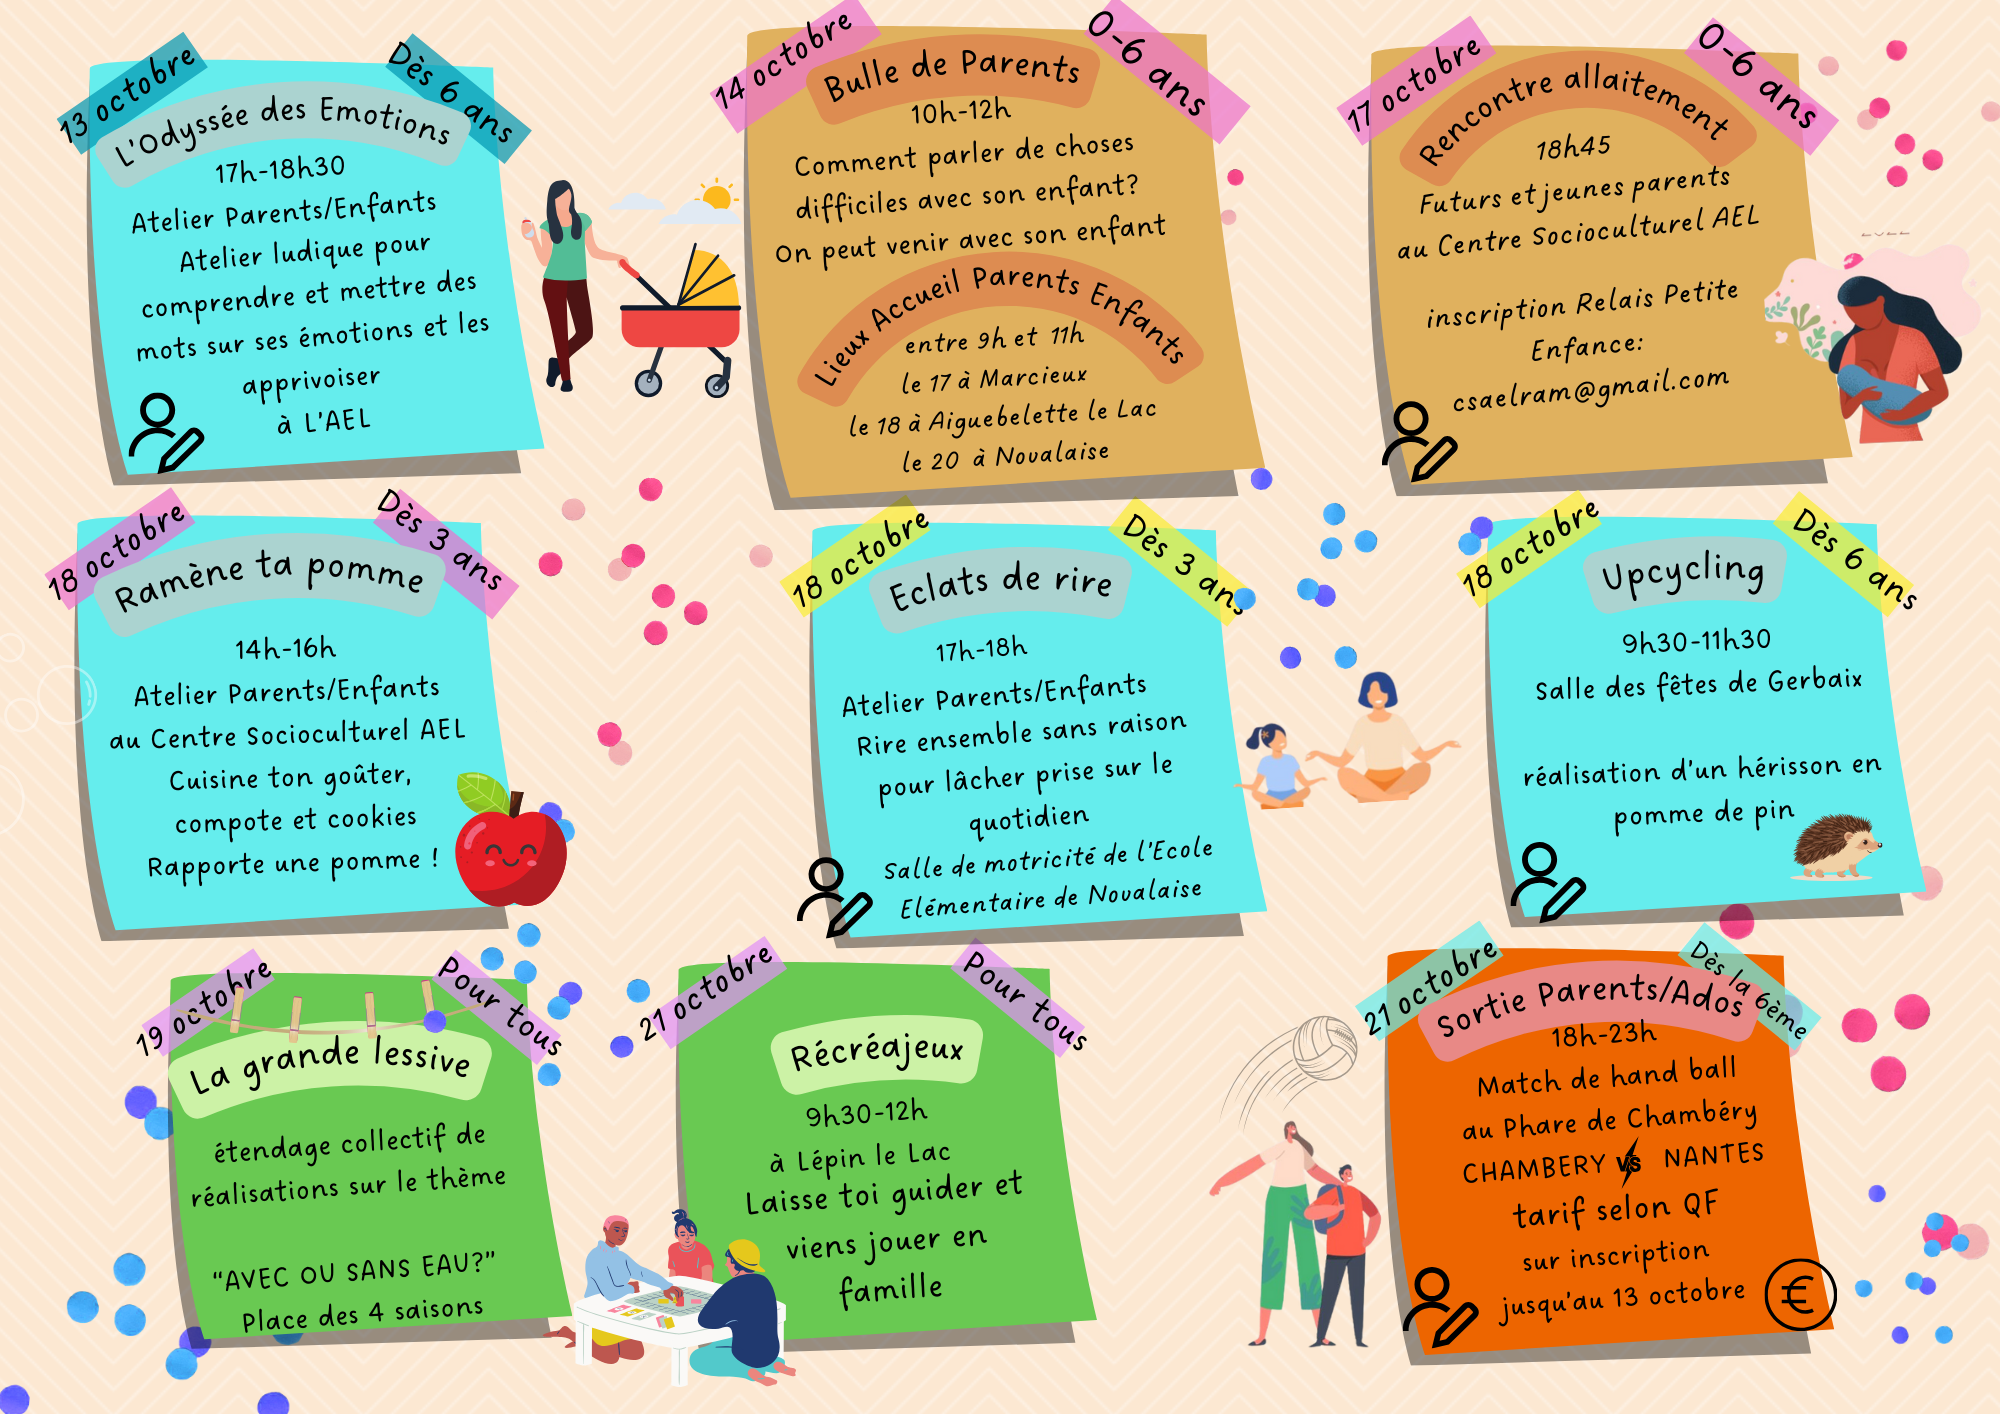 13 octobre
Dès 6 ans
L'Odyssée des Emotions
17h-18h30
Atelier Parents/Enfants
Atelier ludique pour
comprendre et mettre des
mots sur ses émotions et les
apprivoiser
à L'AEL
14 octobre
0-6 ans
Bulle de Parents
10h-12h
Comment parler de choses
difficiles avec son enfant?
On peut venir avec son enfant
Lieux Accueil Parents Enfants
entre 9h et 11h
le 17 à Marcieux
le 18 à Aiguebelette le Lac
le 20 à Novalaise
17 octobre
0-6 ans
Rencontre allaitement
18h45
Futurs et jeunes parents
au Centre Socioculturel AEL
inscription Relais Petite
Enfance:
csaelram@gmail.com
18 octobre
Dès 3 ans
Ramène ta pomme
14h-16h
Atelier Parents/Enfants
au Centre Socioculturel AEL
Cuisine ton goûter,
compote et cookies
Rapporte une pomme !
18 octobre
Dès 3 ans
Eclats de rire
17h-18h
Atelier Parents/Enfants
Rire ensemble sans raison
pour lâcher prise sur le
quotidien
Salle de motricité de l'Ecole
Elémentaire de Novalaise
18 octobre
Dès 6 ans
Upcycling
9h30-11h30
Salle des fêtes de Gerbaix
réalisation d'un hérisson en
pomme de pin
19 octobre
Pour tous
La grande lessive
étendage collectif de
réalisations sur le thème
"AVEC OU SANS EAU?"
Place des 4 saisons
21 octobre
Pour tous
Récréajeux
9h30-12h
à Lépin le Lac
Laisse toi guider et
viens jouer en
famille
21 octobre
Dès la 6ème
Sortie Parents/Ados
18h-23h
Match de hand ball
au Phare de Chambéry
CHAMBERY VS NANTES
tarif selon QF
sur inscription
jusqu'au 13 octobre
€